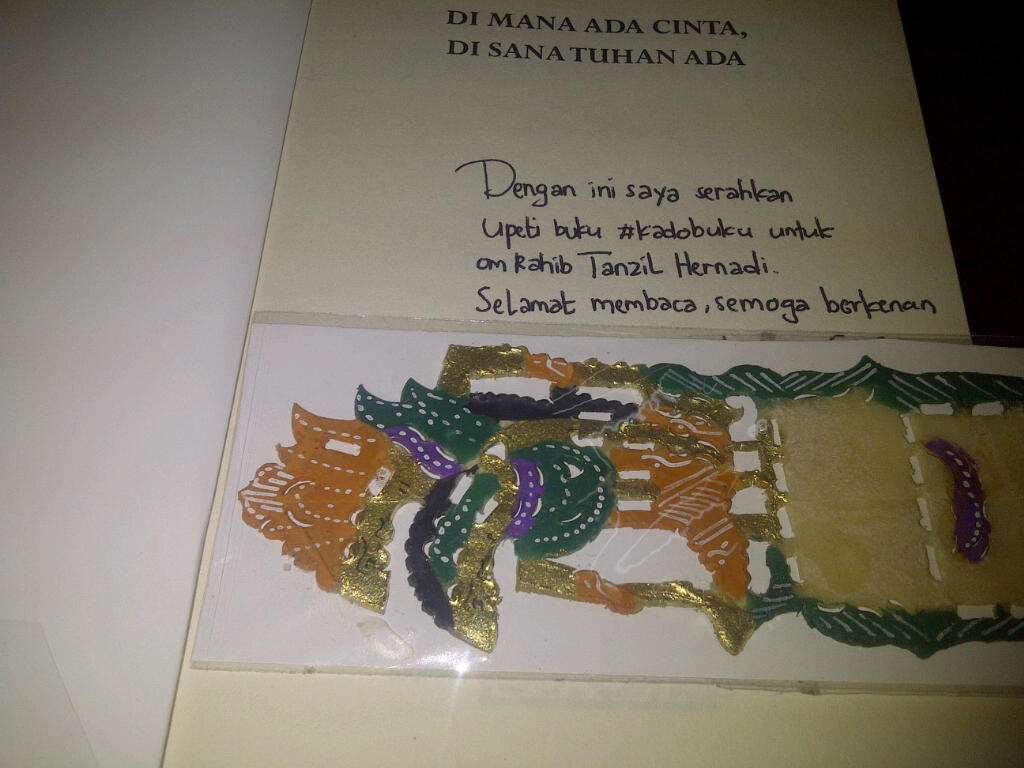 DI MANA ADA CINTA,
DI SANA TUHAN ADA
Dengan ini saya serahkan
Upeti buku #kadobuku untuk
om Rahib Tanzil Hernadi.
Selamat membaca, semoga berkenan